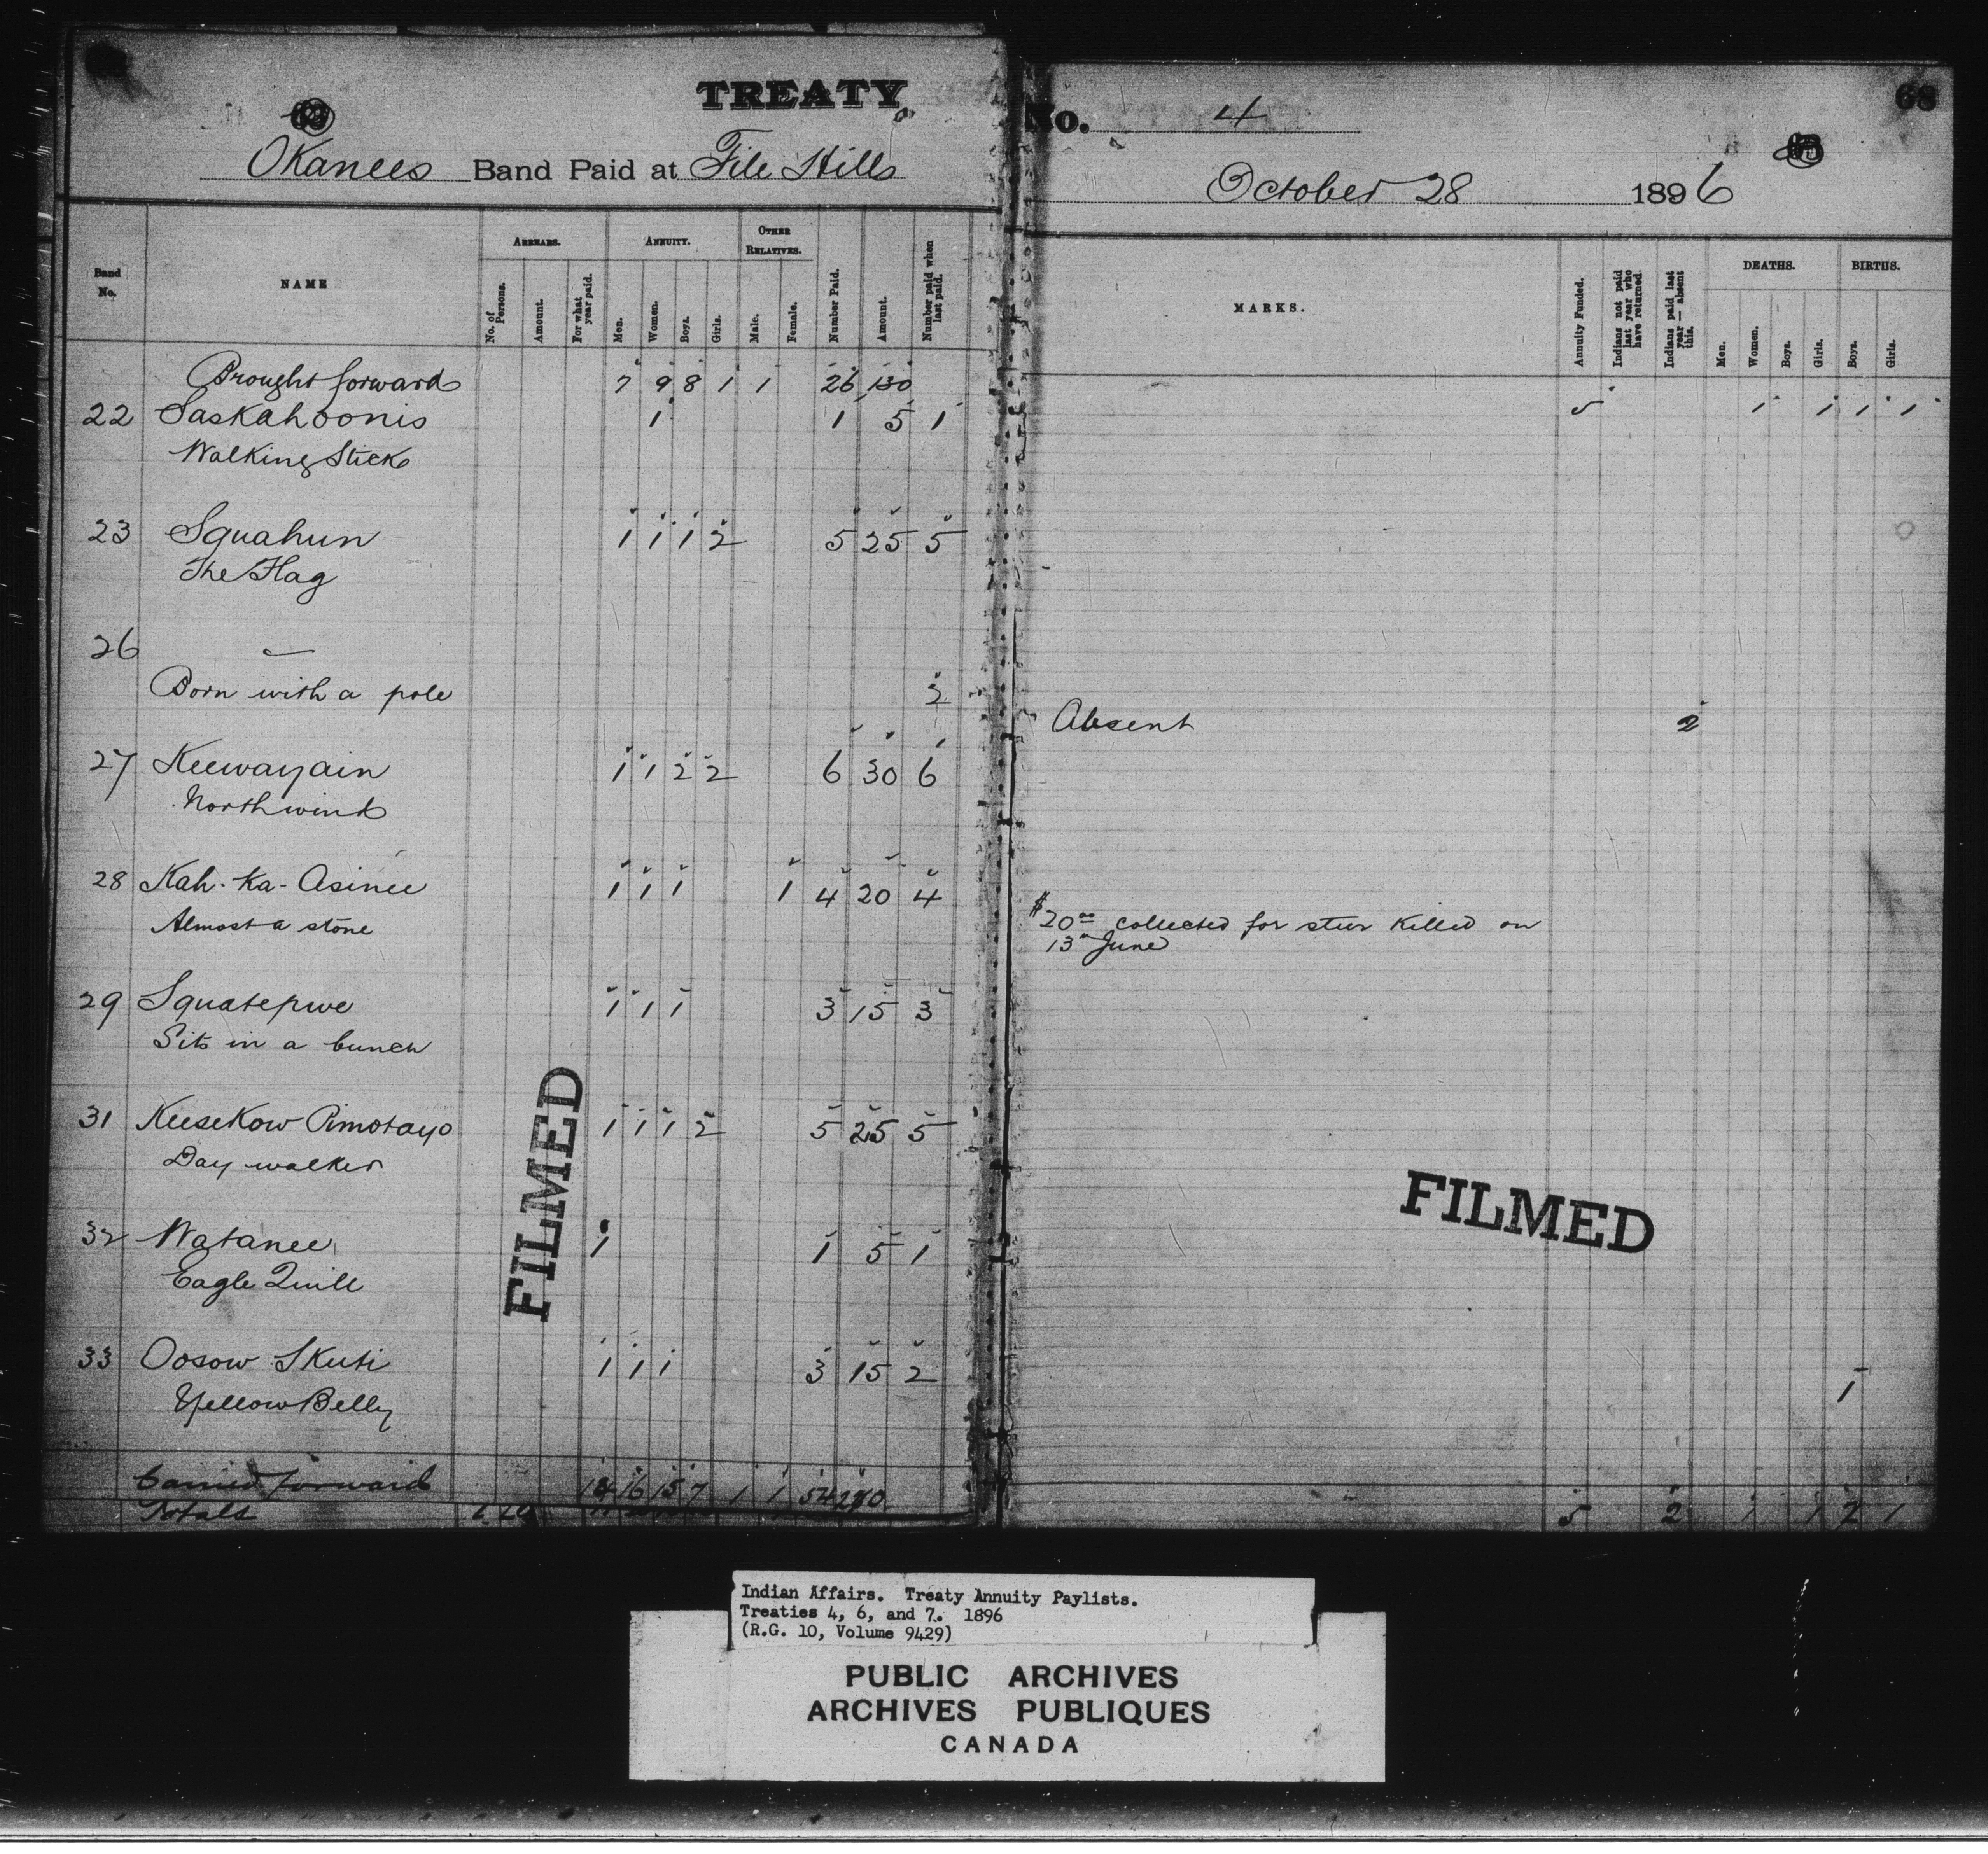 TREATY No. 4
68
Okanees Band Paid at File Hills October 28 1896
Band No.
NAME
ARREARS.
No. of Persons.
Amount.
For what year paid.
ANNUITY.
Men.
Women.
Boys.
Girls.
OTHER RELATIVES.
Male.
Female.
Number Paid.
Amount.
Number paid when last paid.
MARKS.
Annuity Funded.
Indians not paid last year who have returned.
Indians paid last year — absent this.
DEATHS.
Men.
Women.
Boys.
Girls.
BIRTHS.
Boys.
Girls.
Brought forward 7 9 8 1 1 26 130 5 1 1 1 1
22 Saskahoonis 1 1 5 1
Walking Stick
23 Squahun 1 1 1 2 5 25 5
The Flag
26 —
Born with a pole 2 Absent 2
27 Keewayain 1 1 2 2 6 30 6
North wind
28 Kah-Ka-Asinee 1 1 1 1 4 20 4
Almost a stone $20.00 collected for steer killed on
13th June
29 Squatepwe 1 1 1 3 15 3
Sits in a bunch
31 KeeseKow Pimotayo 1 1 1 2 5 25 5
Day walker
32 Watanee 1 1 5 1
Eagle Quill
33 Oosow Skuti 1 1 1 3 15 2 1
Yellow Belly
Carried forward 16 15 7 1 1 54 270 5 2 1 1 2 1
Totals
FILMED
FILMED
Indian Affairs. Treaty Annuity Paylists.
Treaties 4, 6, and 7. 1896
(R.G. 10, Volume 9429)
PUBLIC ARCHIVES
ARCHIVES PUBLIQUES
CANADA